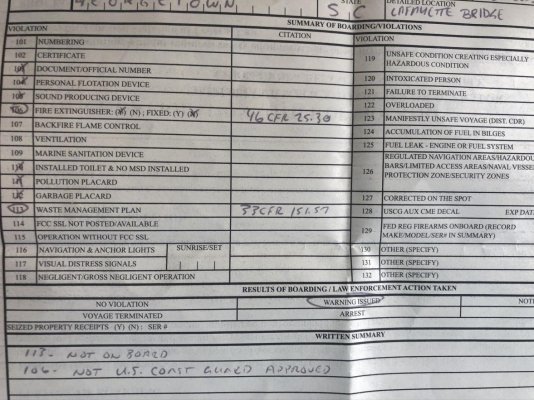 GEORGETOWN STATE SC DETAILED LOCATION LAFAYETTE BRIDGE
SUMMARY OF BOARDING/VIOLATIONS
VIOLATION CITATION VIOLATION
101 NUMBERING
102 CERTIFICATE
103 DOCUMENT/OFFICIAL NUMBER
104 PERSONAL FLOTATION DEVICE
105 SOUND PRODUCING DEVICE
106 FIRE EXTINGUISHER: (N); FIXED: (Y) 46 CFR 25.30
107 BACKFIRE FLAME CONTROL
108 VENTILATION
109 MARINE SANITATION DEVICE
110 INSTALLED TOILET & NO MSD INSTALLED
111 POLLUTION PLACARD
112 GARBAGE PLACARD
113 WASTE MANAGEMENT PLAN 33CFR 151.57
114 FCC SSL NOT POSTED/AVAILABLE
115 OPERATION WITHOUT FCC SSL
116 NAVIGATION & ANCHOR LIGHTS SUNRISE/SET
117 VISUAL DISTRESS SIGNALS
118 NEGLIGENT/GROSS NEGLIGENT OPERATION
119 UNSAFE CONDITION CREATING ESPECIALLY
HAZARDOUS CONDITION
120 INTOXICATED PERSON
121 FAILURE TO TERMINATE
122 OVERLOADED
123 MANIFESTLY UNSAFE VOYAGE (DIST. CDR)
124 ACCUMULATION OF FUEL IN BILGES
125 FUEL LEAK - ENGINE OR FUEL SYSTEM
126 REGULATED NAVIGATION AREAS/HAZARDOU
BARS/LIMITED ACCESS AREAS/NAVAL VESSE
PROTECTION ZONE/SECURITY ZONES
127 CORRECTED ON THE SPOT
128 USCG AUX CME DECAL EXP DA
129 FED REG FIREARMS ONBOARD (RECORD
MAKE/MODEL/SER# IN SUMMARY)
130 OTHER (SPECIFY)
131 OTHER (SPECIFY)
132 OTHER (SPECIFY)
RESULTS OF BOARDING / LAW ENFORCEMENT ACTION TAKEN
NO VIOLATION WARNING ISSUED NOTI
VOYAGE TERMINATED ARREST
SEIZED PROPERTY RECEIPTS (Y) (N): SER #
WRITTEN SUMMARY
113- NOT ON BOARD
106- NOT U.S. COAST GUARD APPROVED